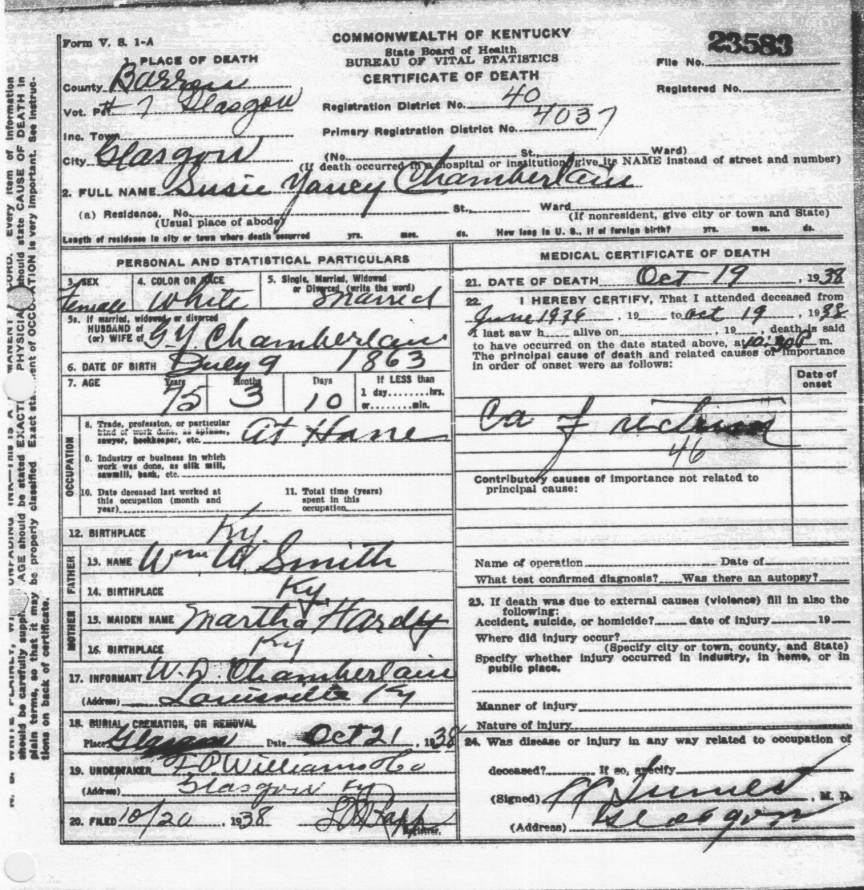 Form V. S. 1-A
COMMONWEALTH OF KENTUCKY
State Board of Health
BUREAU OF VITAL STATISTICS
CERTIFICATE OF DEATH
23583
File No.
Registered No.
1. PLACE OF DEATH
County Barren
Vot. Pct. # 7 Glasgow
Inc. Town
City Glasgow
Registration District No. 40
Primary Registration District No. 4037
(No. St., Ward)
(If death occurred in a hospital or institution, give its NAME instead of street and number)
2. FULL NAME Susie Yancy Chamberlain
(a) Residence. No. St., Ward
(Usual place of abode) (If nonresident, give city or town and State)
Length of residence in city or town where death occurred yrs. mos. ds. How long in U. S., if of foreign birth? yrs. mos. ds.
PERSONAL AND STATISTICAL PARTICULARS
3. SEX Female
4. COLOR OR RACE White
5. Single, Married, Widowed
or Divorced, (write the word)
Married
5a. If married, widowed or divorced
HUSBAND of
(or) WIFE of G Y Chamberlain
6. DATE OF BIRTH July 9 1863
7. AGE Years Months Days If LESS than
75 3 10 1 day......hrs.
or......min.
OCCUPATION
8. Trade, profession, or particular
kind of work done, as spinner,
sawyer, bookkeeper, etc. At Home
9. Industry or business in which
work was done, as silk mill,
sawmill, bank, etc.
10. Date deceased last worked at
this occupation (month and
year)
11. Total time (years)
spent in this
occupation
12. BIRTHPLACE Ky.
FATHER
13. NAME Wm W. Smith
14. BIRTHPLACE Ky
MOTHER
15. MAIDEN NAME Martha Hardy
16. BIRTHPLACE Ky
17. INFORMANT Chamberlain
(Address) Louisville Ky
18. BURIAL, CREMATION, OR REMOVAL
Place Glasgow Date Oct 21, 1938
19. UNDERTAKER Williams & Co
(Address) Glasgow Ky
20. FILED 10/20 1938
Registrar.
MEDICAL CERTIFICATE OF DEATH
21. DATE OF DEATH Oct 19, 1938
22. I HEREBY CERTIFY, That I attended deceased from
June 1936, 19 to Oct 19, 1938
I last saw h alive on , 19 , death is said
to have occurred on the date stated above, at 10:30 m.
The principal cause of death and related causes of importance
in order of onset were as follows:
Date of
onset
Ca of rectum
46
Contributory causes of importance not related to
principal cause:
Name of operation Date of
What test confirmed diagnosis? Was there an autopsy?
23. If death was due to external causes (violence) fill in also the
following:
Accident, suicide, or homicide? date of injury 19
Where did injury occur?
(Specify city or town, county, and State)
Specify whether injury occurred in industry, in home, or in
public place.
Manner of injury
Nature of injury
24. Was disease or injury in any way related to occupation of
deceased? If so, specify
(Signed) , M. D.
(Address) Glasgow